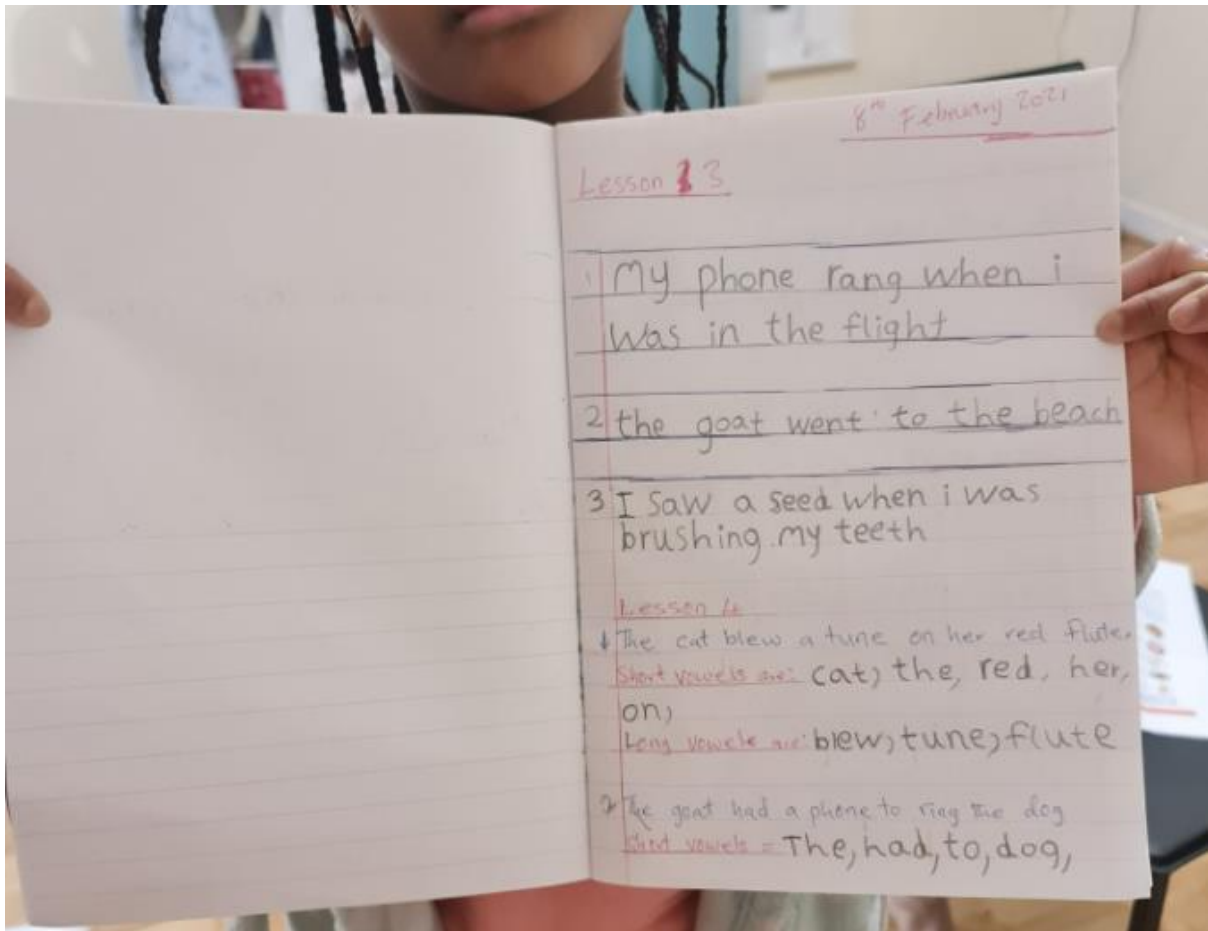 8th February 2021
Lesson 3
1 My phone rang when i
was in the flight
2 the goat went to the beach
3 I saw a seed when i was
brushing my teeth
Lesson 4
1 The cat blew a tune on her red flute.
Short vowels are: cat, the, red, her,
on,
Long vowels are: blew, tune, flute
2 The goat had a phone to ring the dog
Short vowels = The, had, to, dog,